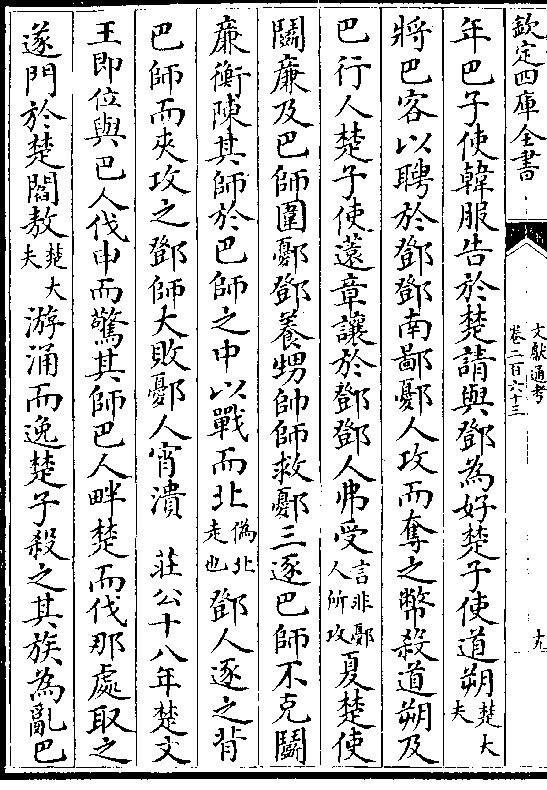 欽定四庫全書
文獻通考
卷二百六十三
十九
年巴子使韓服告於楚請與鄧為好楚子使道朔楚大夫
將巴客以聘於鄧鄧南鄙鄾人攻而奪之幣殺道朔及
巴行人楚子使薳章讓於鄧鄧人弗受言非鄾人所攻夏楚使
鬬廉及巴師圍鄾鄧養甥帥師救鄾三逐巴師不克鬬
廉衡陳其師於巴師之中以戰而北偽北走也鄧人逐之背
巴師而夾攻之鄧師大敗鄾人宵潰　莊公十八年楚文
王即位與巴人伐申而驚其師巴人畔楚而伐那處取之
遂門於楚閻敖楚大夫游涌而逸楚子殺之其族為亂巴